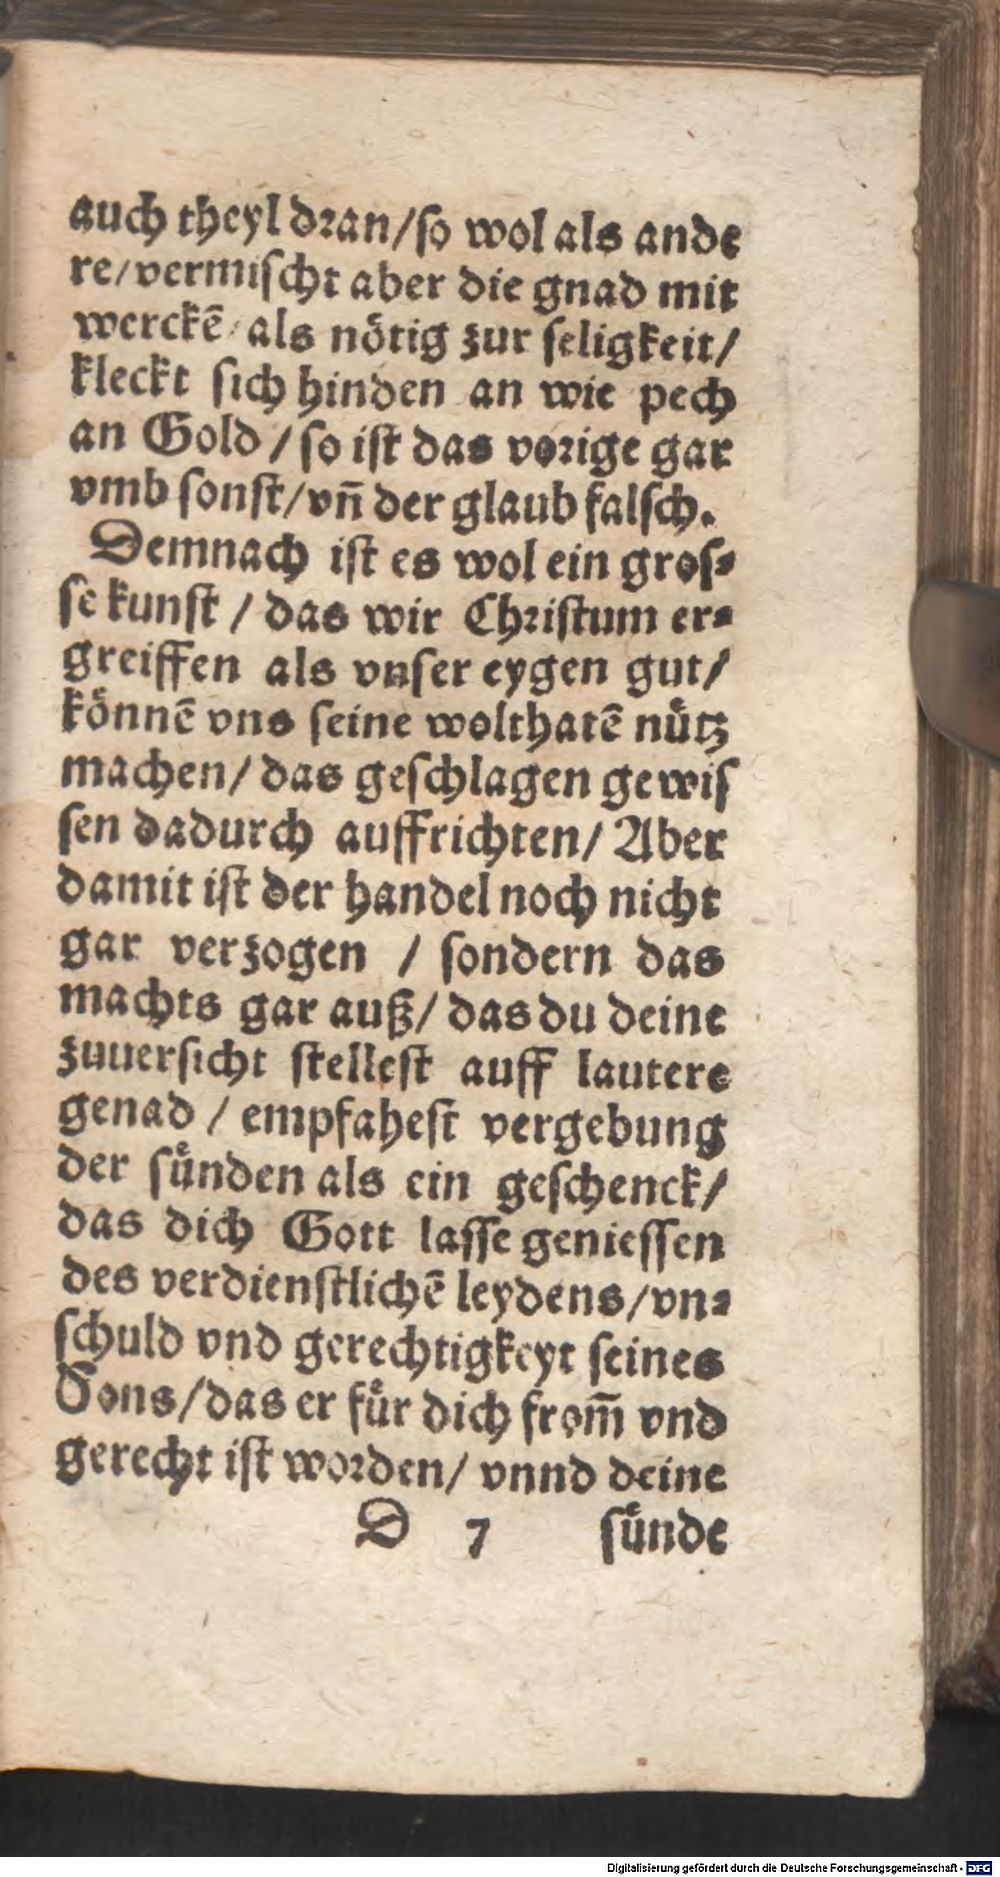 auch theyl dran/ſo wol als ande
re/vermiſcht aber die gnad mit
werckē/als nötig zur ſeligkeit/
kleckt ſich hinden an wie pech
an Gold/ſo iſt das vorige gar
vmb ſonſt/vn̄ der glaub falſch.
Demnach iſt es wol ein groſ⸗
ſe kunſt/das wir Chriſtum er⸗
greiffen als vnſer eygen gut/
koͤnnē vns ſeine wolthatē nuͤtz
machen/das geſchlagen gewiſ
ſen dadurch auffrichten/Aber
damit iſt der handel noch nicht
gar verzogen / ſondern das
machts gar auß/das du deine
zuuerſicht ſtelleſt auff lautere
genad / empfaheſt vergebung
der ſuͤnden als ein geſchenck/
das dich Gott laſſe genieſſen
des verdienſtlichē leydens/vn⸗
ſchuld vnd gerechtigkeyt ſeines
Sons/das er fuͤr dich from̄ vnd
gerecht iſt worden/ vnnd deine
D 7 ſuͤnde
Digitalisierung gefördert durch die Deutsche Forschungsgemeinschaft - DFG